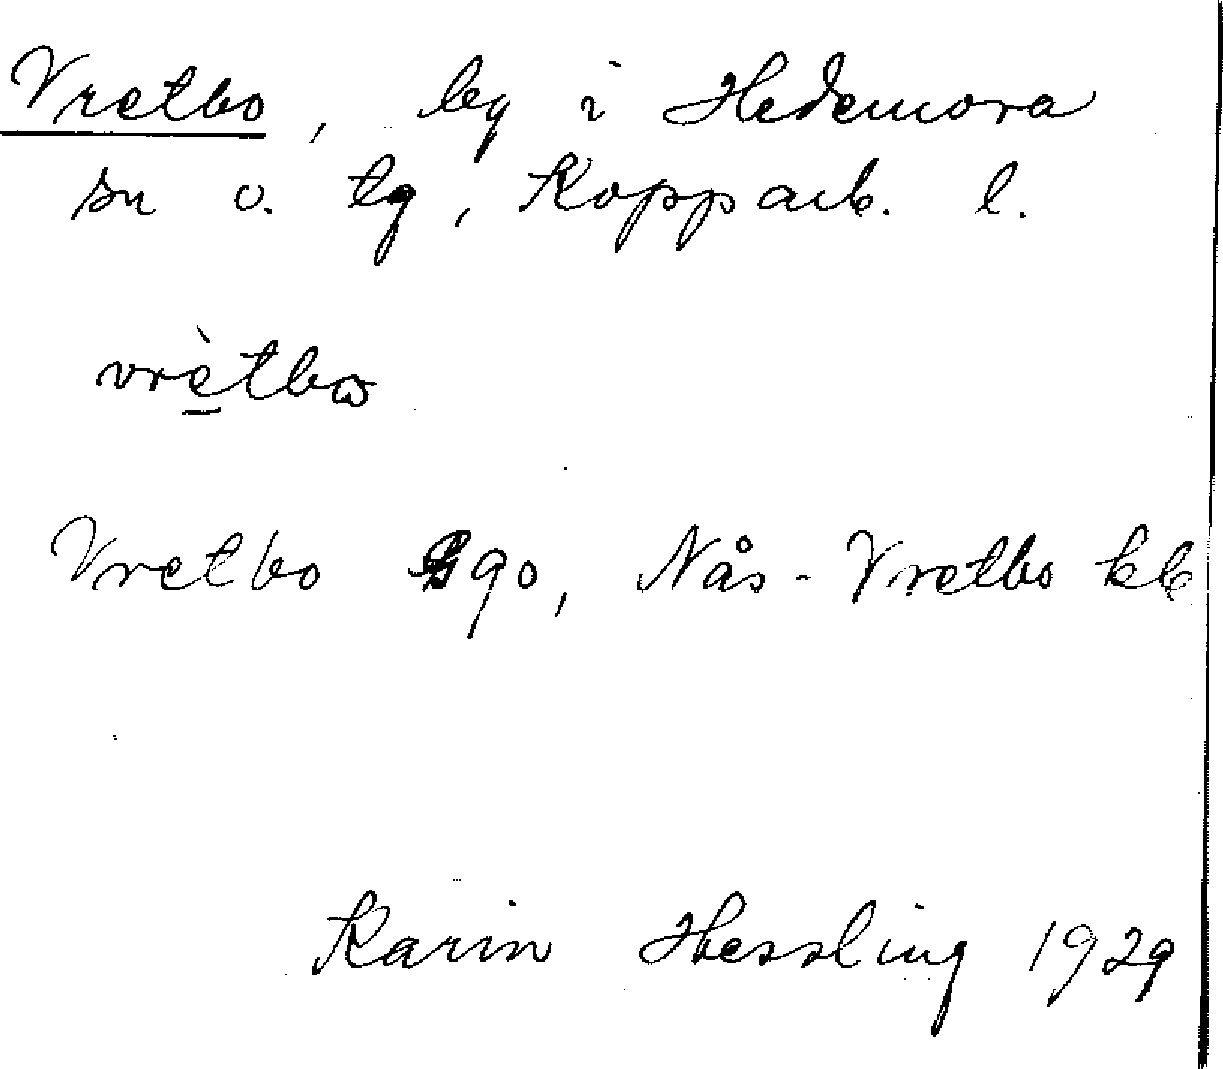 Vretbo, by i Hedemora
sn o. tg, Kopparb. l.
vrètbω
Vretbo go, Nås-Vretbo kb
Karin Hessling 1929